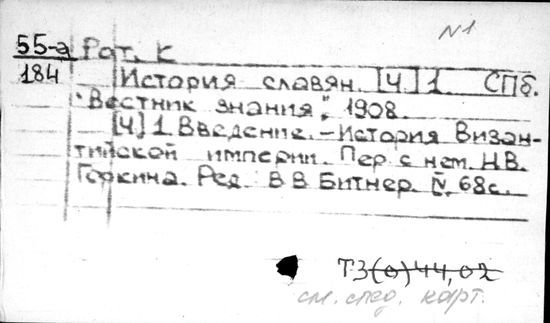 N1
55-а Рот, К
184 История славян. [Ч] 1. СПб.
"Вестник знания", 1908.
[Ч] 1. Введение. – История Визан-
тийской империи. Пер. с нем. Н.В.
Горкина. Ред. В В Битнер. IV, 68с.
Т3(0)44,02
см. след. карт.